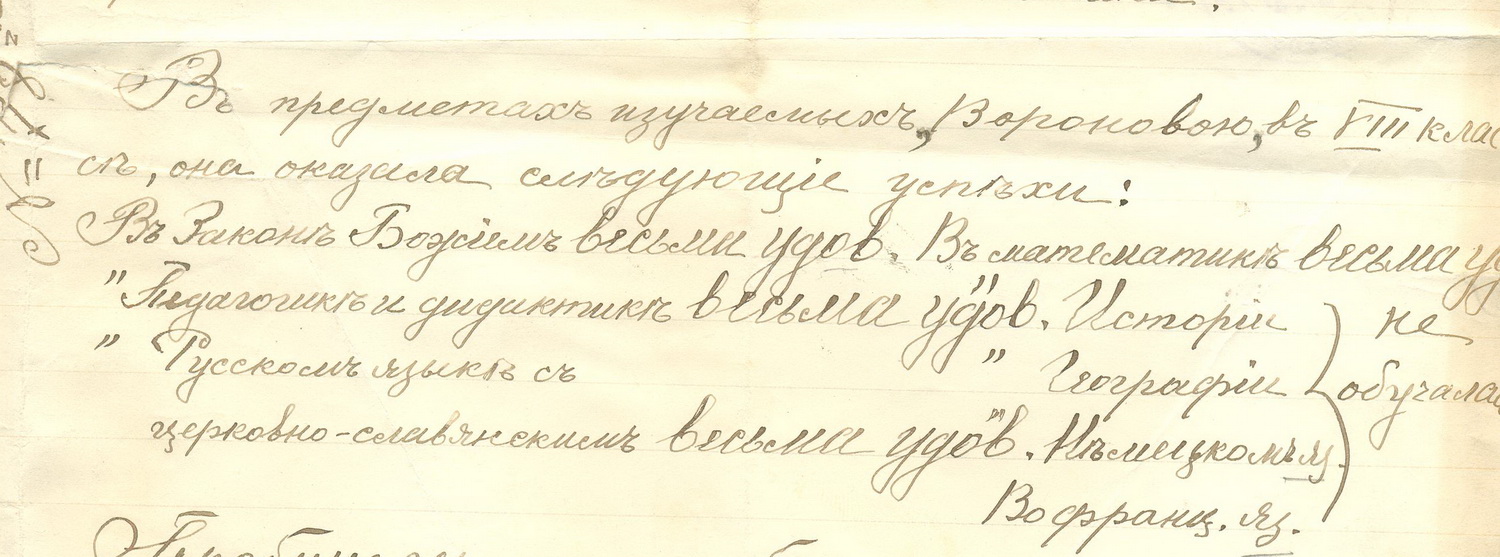 Въ предметахъ изучаемыхъ, Вороновою, въ VIII клас
сѣ, она оказала слѣдующіе успѣхи:
Въ Законѣ Божіемъ весьма удов. Въ математикѣ весьма уд
" Педагогикѣ и дидактикѣ весьма удов. " Исторіи не
" Русскомъ языкѣ съ " Географіи обучалас
церковно-славянскимъ весьма удов. " Нѣмецкомъ яз.
Во франц. яз.